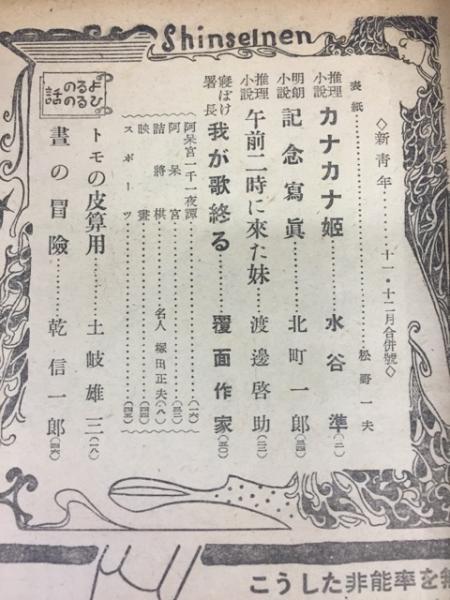 Shinseinen
◇新青年……十一・十二月合併號◇
表紙……………松野一夫
推理小説 カナカナ姫……水谷準(二)
明朗小説 記念寫眞……北町一郎(三四)
推理小説 午前二時に來た妹…渡邊啓助(三三)
寢ぼけ署長 我が歌終る……覆面作家(三〇)
阿呆宮一千一夜譚……(一六)
阿呆宮……
詰將棋……名人 塚田正夫(八)
映畫……(四四)
スポーツ……(四三)
よるのひるの話
トモの皮算用……土岐雄三(一八)
晝の冒險……乾信一郎(四六)
こうした非能率を